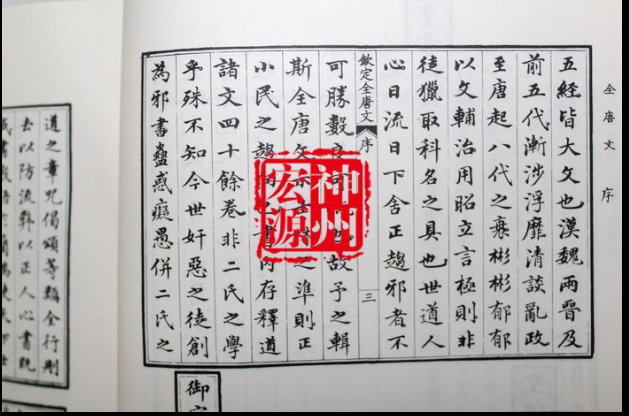 全唐文 序
五經皆大文也漢魏兩晉及
前五代漸涉浮靡清談亂政
至唐起八代之衰彬彬郁郁
以文輔治用昭立言極則非
徒獵取科名之具也世道人
心日流日下舍正趨邪者不
欽定全唐文 序 三
可勝數 故予之輯
斯全唐文 之準則正
小民之趨 書內存釋道
諸文四十餘卷非二氏之學
乎殊不知今世奸惡之徒創
為邪書蠱惑癡愚併二氏之
道之章咒偈頌等類全行刪
去以防流弊以正人心書既
御
神州
宏源